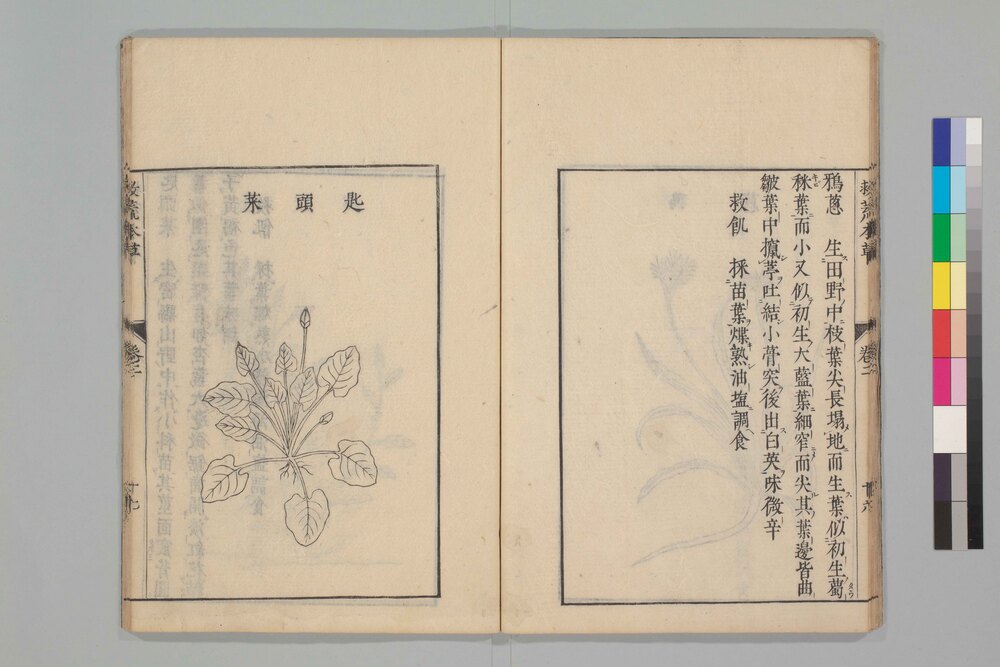 鴉葱　生田野中枝葉尖長塌地而生葉似初生蜀
秫葉而小又似初生大藍葉細窄而尖其葉邊皆曲
皺葉中攛葶吐結小蓇葖後出白英味微辛
救飢　採苗葉煠熟油塩調食
救荒本草
卷二
匙頭菜
救荒本草
卷二